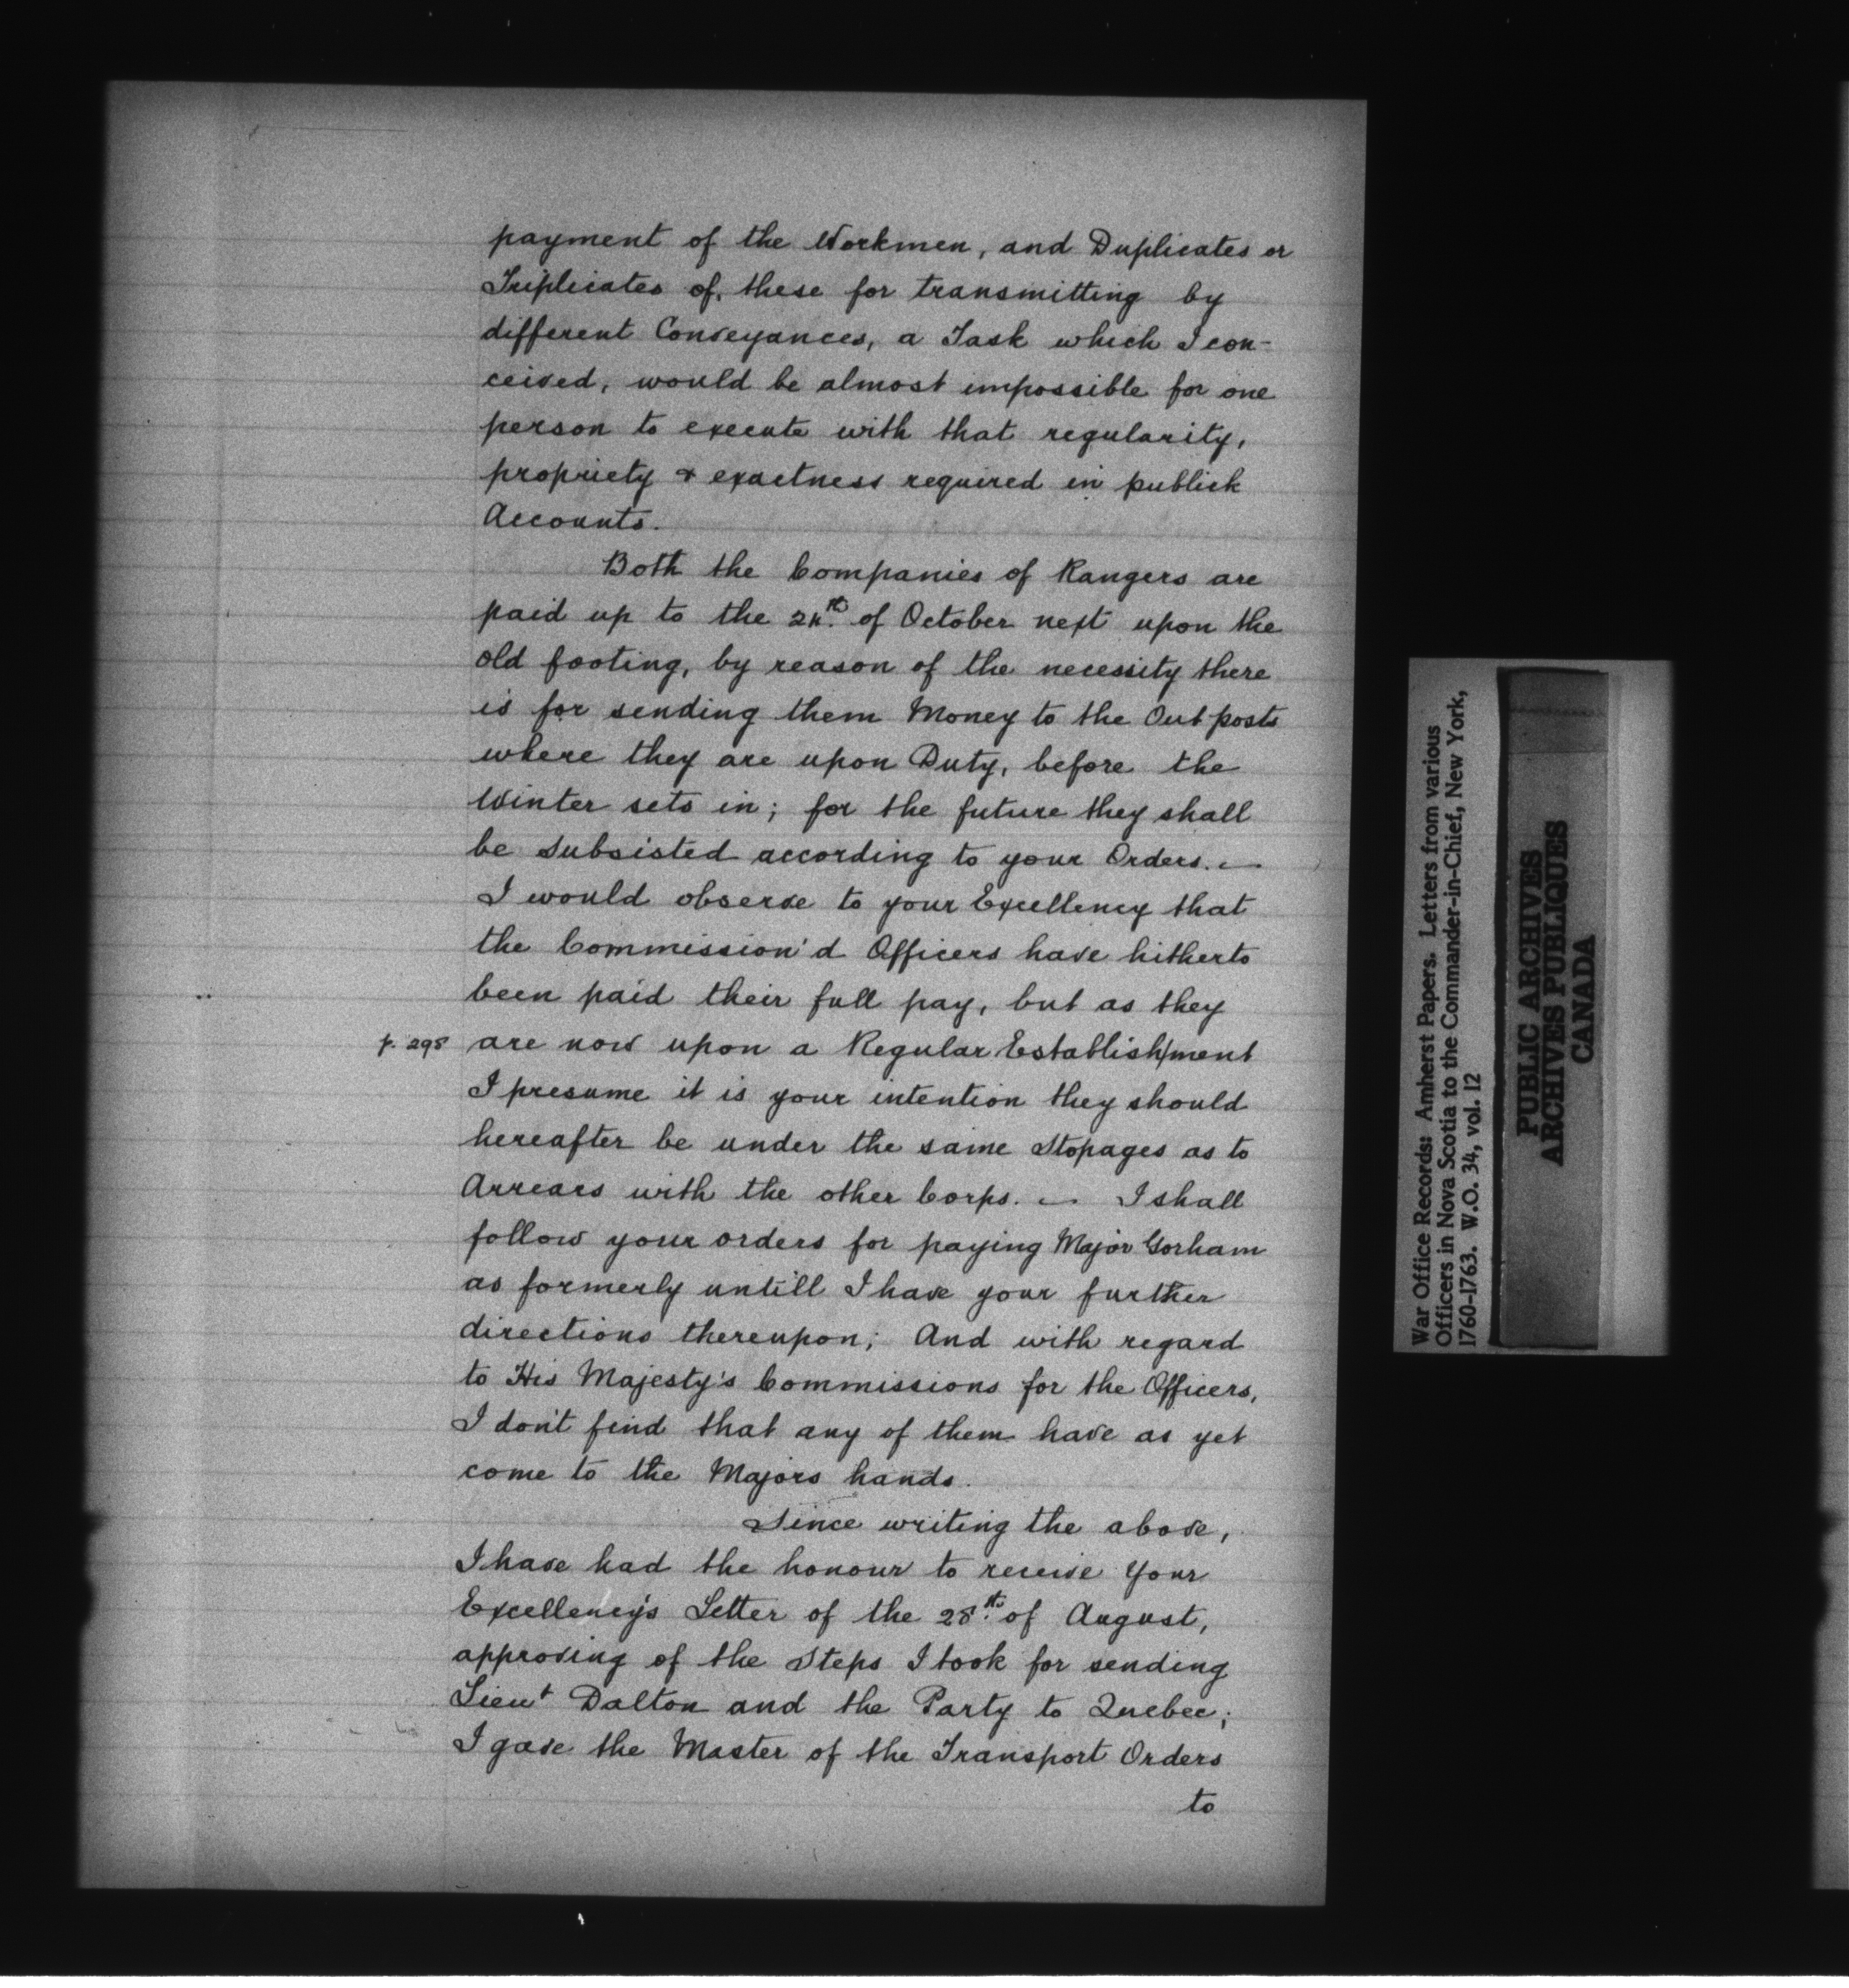 payment of the Workmen, and Duplicates or
Triplicates of, these for transmitting by
different Conveyances, a Task which I con-
ceived, would be almost impossible for one
person to execute with that regularity,
propriety & exactness required in publick
Accounts.
Both the Companies of Rangers are
paid up to the 24th. of October next upon the
old footing, by reason of the necessity there
is for sending them Money to the Out posts
where they are upon Duty, before the
Winter sets in; for the future they shall
be Subsisted according to your Orders. —
I would observe to your Excellency that
the Commission'd Officers have hitherto
been paid their full pay, but as they
p. 298 are now upon a Regular Establish/ment
I presume it is your intention they should
hereafter be under the same Stopages as to
Arrears with the other Corps. — I shall
follow your orders for paying Major Gorham
as formerly untill I have your further
directions thereupon; And with regard
to His Majesty's Commissions for the Officers,
I don't find that any of them have as yet
come to the Majors hands.
Since writing the above,
I have had the honour to receive Your
Excellency's Letter of the 28th. of August,
approving of the Steps I took for sending
Lieut Dalton and the Party to Quebec;
I gave the Master of the Transport Orders
to
War Office Records: Amherst Papers. Letters from various
Officers in Nova Scotia to the Commander-in-Chief, New York,
1760-1763. W.O. 34, vol. 12
PUBLIC ARCHIVES
ARCHIVES PUBLIQUES
CANADA